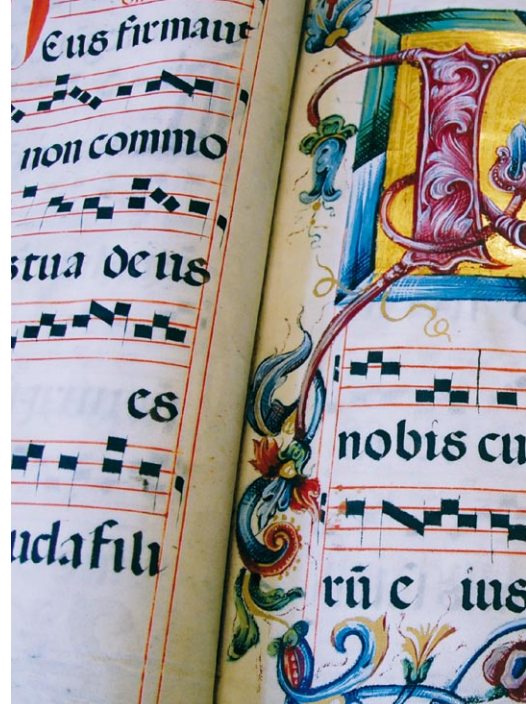 Eus firmavit
non commo
s tua deus
es
uda fili
nobis cu
rū e ius